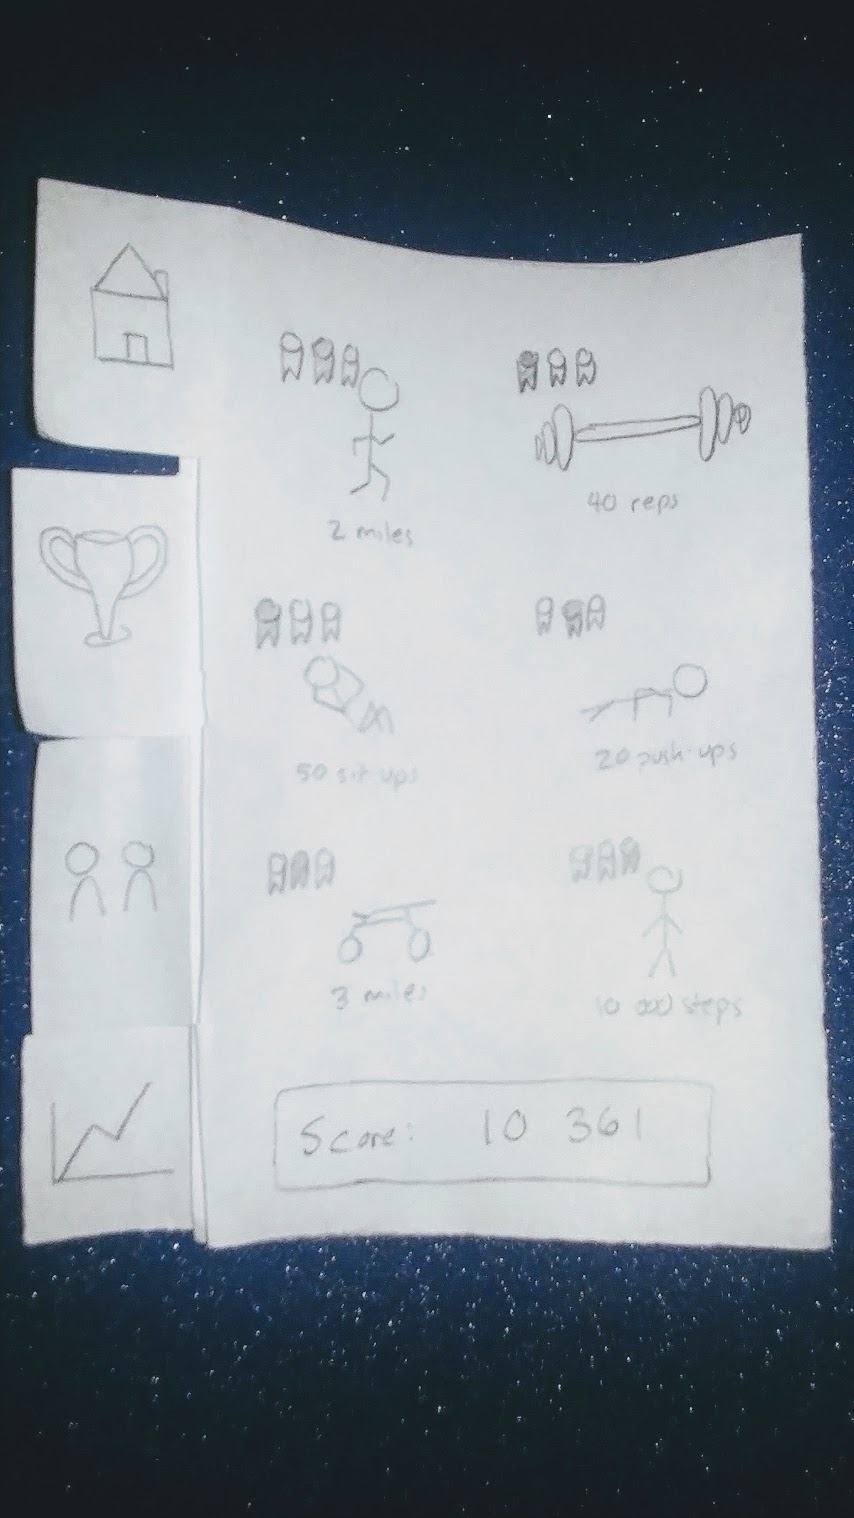 2 miles
40 reps
50 sit ups
20 push-ups
3 miles
10 000 steps
Score: 10 361